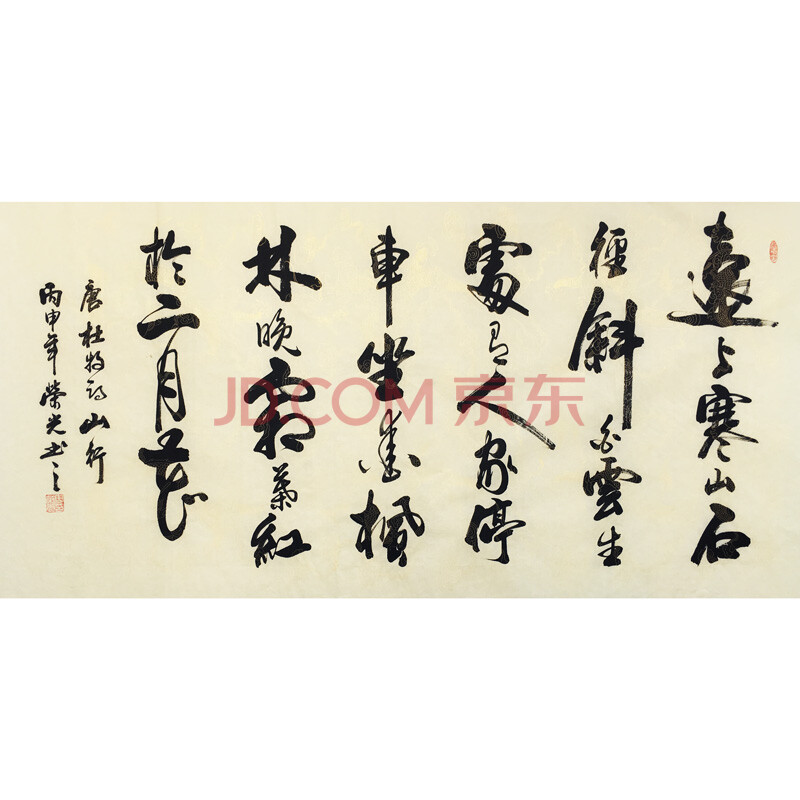 遠上寒山石
徑斜白雲生
處有人家停
車坐愛楓
林晚霜葉紅
於二月花
唐杜牧詩山行
丙申年榮光书之
JD.COM 京东